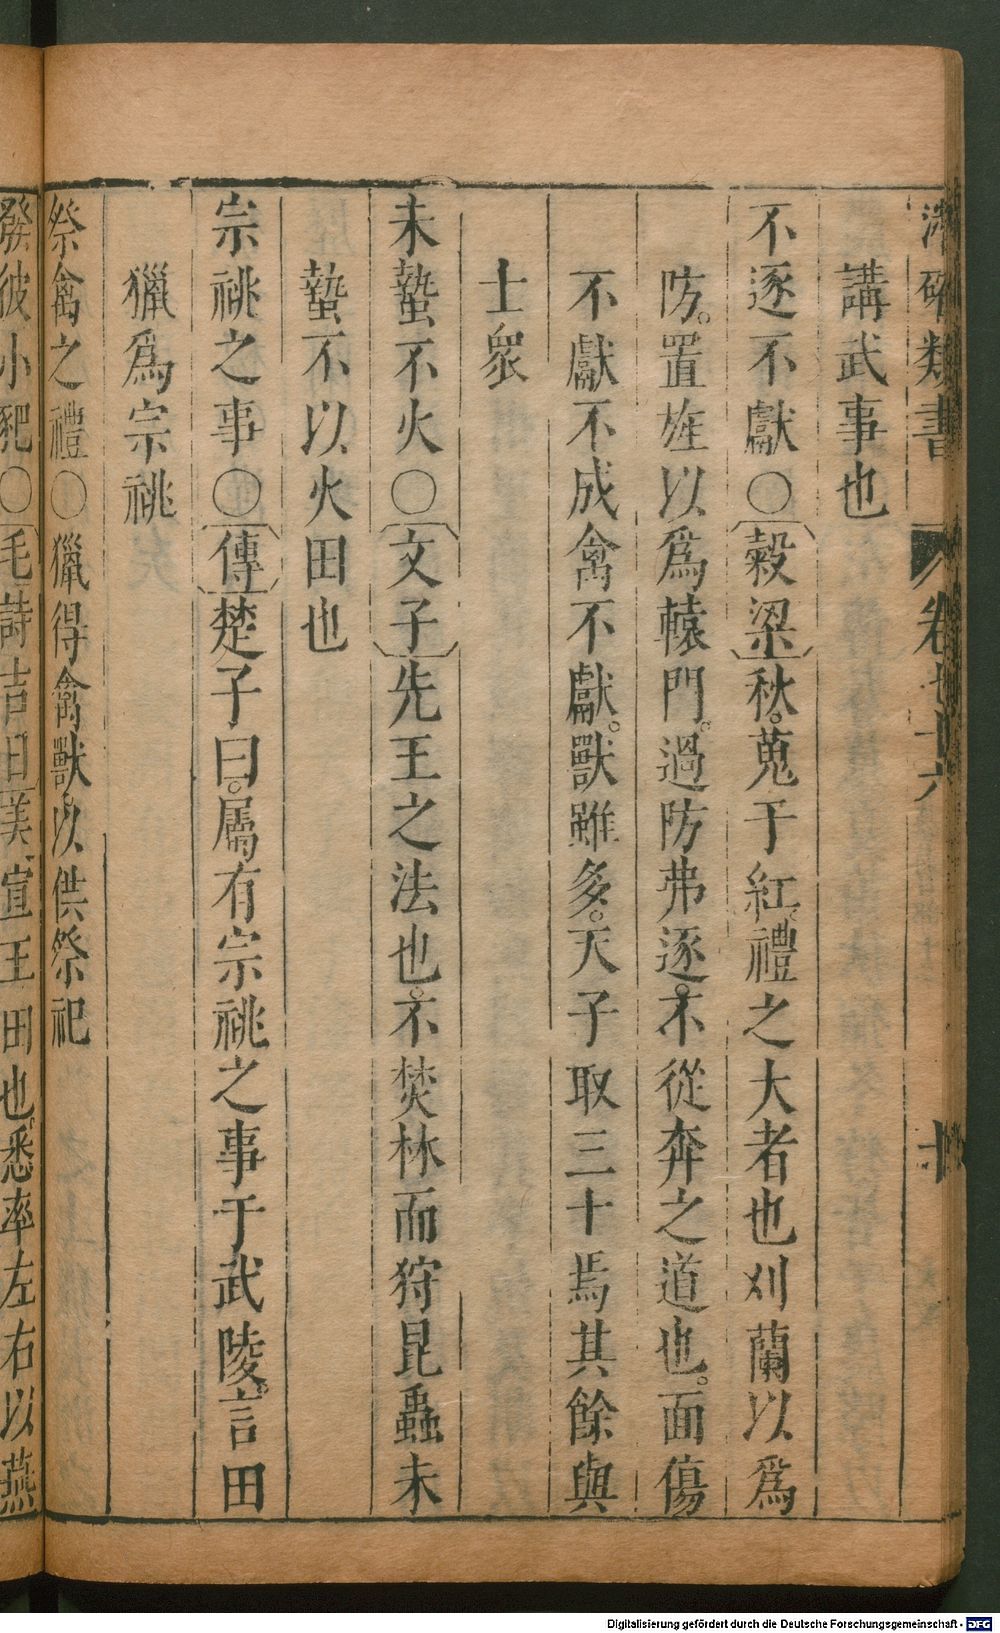 潜確類書 卷七十六 十
講武事也
不逐不獻〇穀梁秋。蒐于紅。禮之大者也刈蘭以爲
防。置旃以爲轅門。過防弗逐。不從奔之道也。面傷
不獻不成禽不獻。獸雖多。天子取三十焉其餘與
士衆
未蟄不火〇文子先王之法也。不焚林而狩昆蟲未
蟄不以火田也
宗祧之事〇傳楚子曰。屬有宗祧之事于武陵。言田
獵爲宗祧
祭禽之禮〇獵得禽獸。以供祭祀
發彼小豝〇毛詩吉日美宣王田也。悉率左右以燕
Digitalisierung gefördert durch die Deutsche Forschungsgemeinschaft - DFG